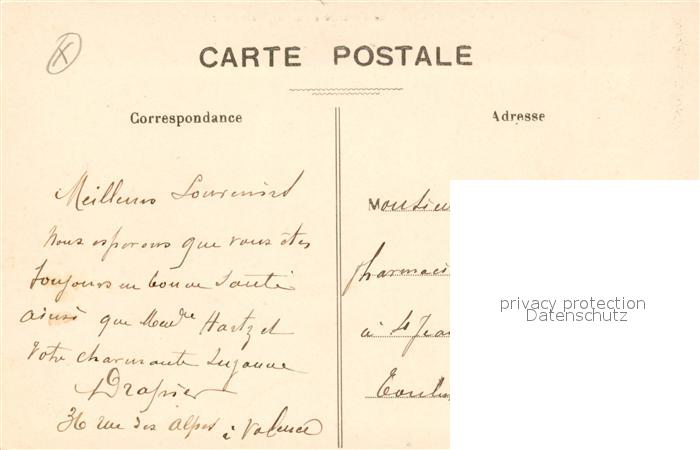 CARTE POSTALE
Correspondance
Adresse
Meilleurs Souvenirs
Nous esperons que vous êtes
toujours en bonne Santé
ainsi que Mme Hartz et
Votre charmante Suzanne
Drapier
36 rue des Alpes à Valence
Monsieu
pharmaci
à St Jea
Toul
privacy protection
Datenschutz